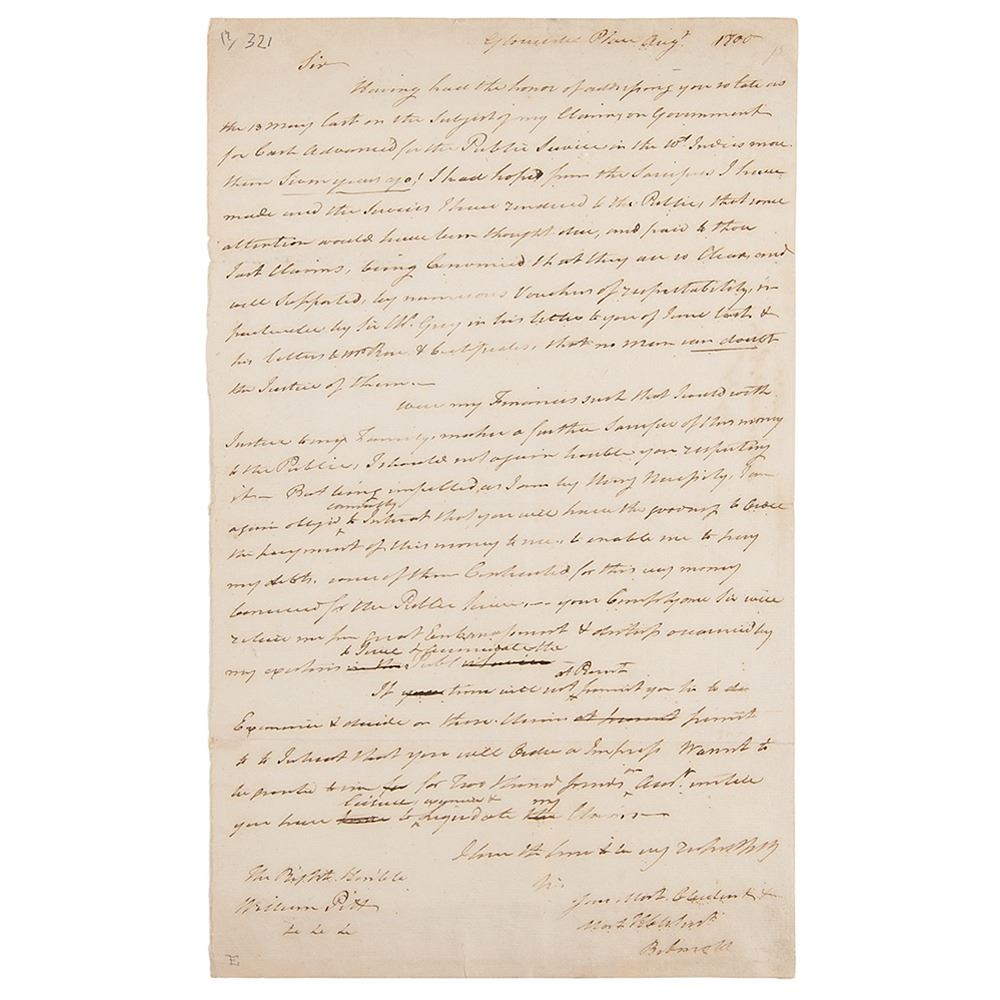 17/ 321
Gloucester Place Augt. 1800
Sir
Having had the honor of addressing you so late as
the 13 May last on the Subject of my Claims on Government
for Cash Advanced for the Public Service in the Wt. Indies more
than Seven years ago! I had hoped from the Sacrifices I have
made and the Services I have rendered to the Public, that some
attention would have been thought due, and paid to those
Just Claims, being Convinced that they are so Clear, and
well Supported, by numerous Vouchers of respectability, in
particular by Sir Chs. Grey in his letter to you of June last &
his letters to Mr Rose & Certificates, that no man can doubt
the Justice of them.—
Were my Finances such that I could with
Justice to my Family, make a further Sacrifice of this money
to the Public, I should not again trouble you respecting
it— But being impelled as I am by Strong Necessity, I am
again obliged earnestly to Intreat that you will have the goodness to Order
the payment of this money to me, to enable me to pay
my debts, some of them Contracted for this very money
for the Public Service.— your Compliance Sir will
relieve me from great Embarrassment & distress occasioned by
my exertions in the Public Service to Serve & the
If your time will not at Present permit you Sir to
Examine & decide on these Claims at present permit
me to Intreat that you will Order a Impress Warrant to
be granted to me for Two thousand pounds on Acct. untill
you have leisure, to examine & liquidate the my Claims.—
I have the honor to be very respectfully
The Right Honble
William Pitt
&c &c &c
Sir
your Most Obedient &
Most Hble Servt.
E